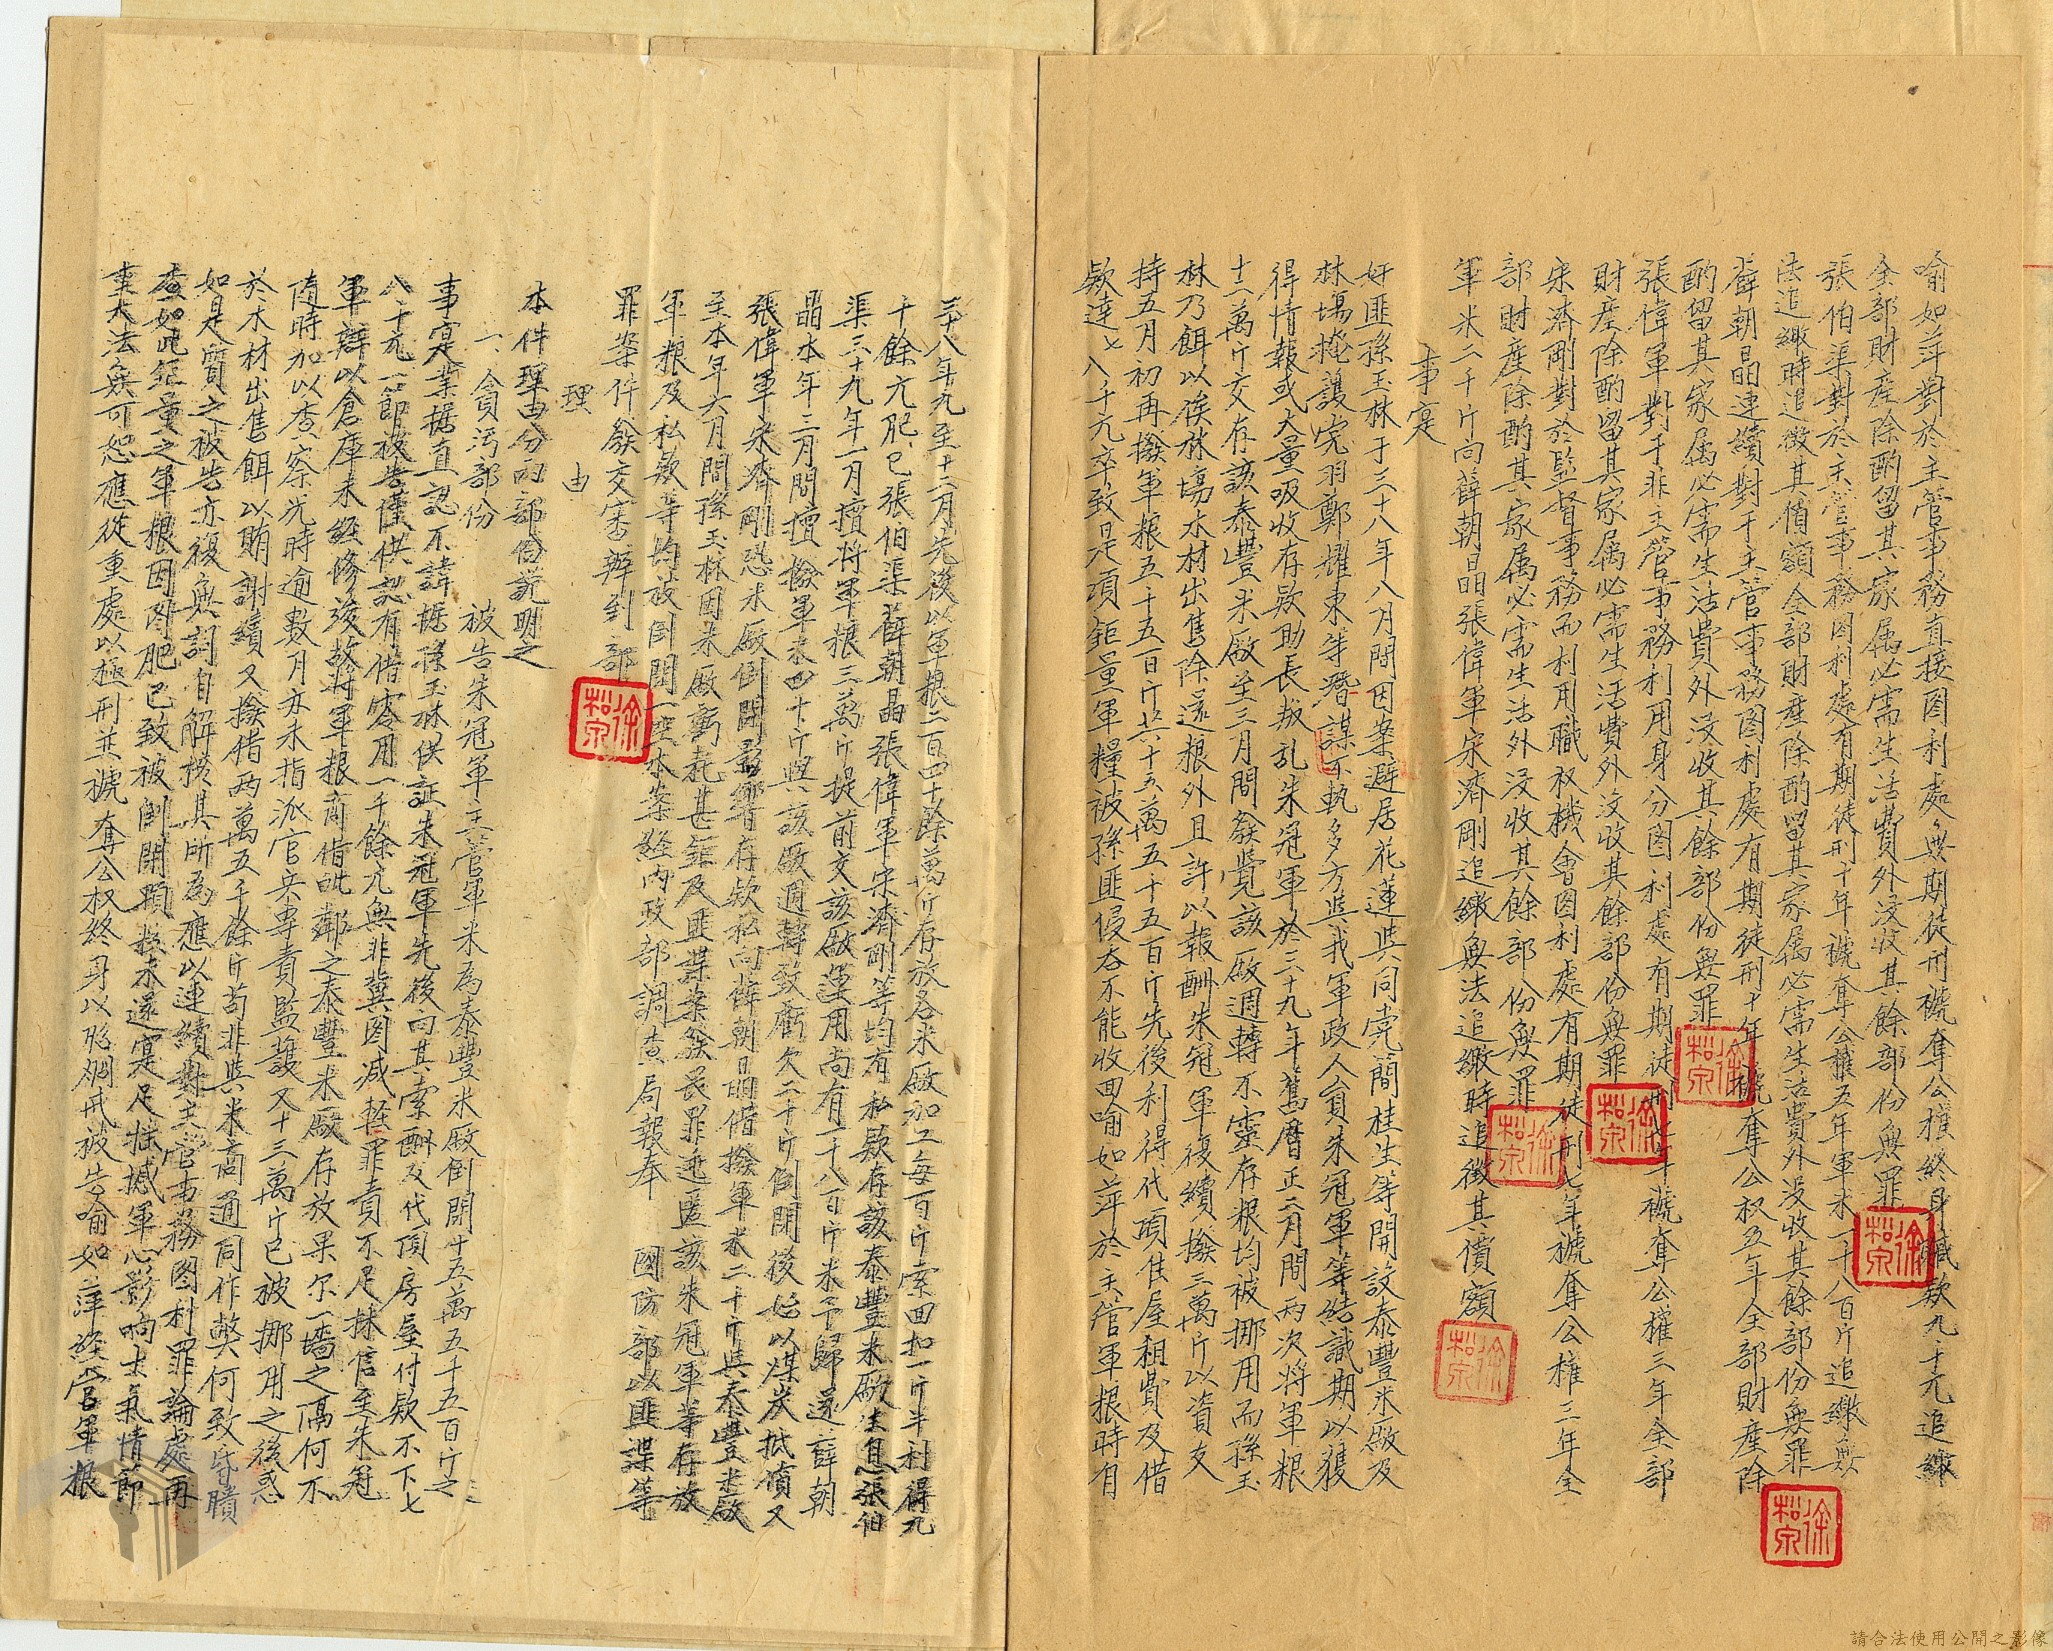 喻如萍對於主管事務直接图利處無期徒刑褫奪公權終身贓款九千元追繳
全部財產除酌留其家属必需生活費外沒收其餘部份無罪
張伯渠對於主管事務图利處有期徒刑十年褫奪公權五年軍米一千八百斤追繳無
法追繳時追徵其價額全部財產除酌留其家属必需生活費外沒收其餘部份無罪
薛朝晶連續對于主管事務图利處有期徒刑十年褫奪公权五年全部財產除
酌留其家属必需生活費外沒收其餘部份無罪
張偉軍對于非主管事務利用身分图利處有期徒刑七年褫奪公權三年全部
財產除酌留其家属必需生活費外沒收其餘部份無罪
宋濟剛對於監督事務而利用職权機會图利處有期徒刑七年褫奪公權三年全
部財產除酌其家属必需生活外沒收其餘部份無罪
軍米二千斤向薛朝晶張偉軍宋濟剛追繳無法追繳時追徵其價額
事寔
奸匪孫玉林于三十八年八月間因案避居花蓮與同党簡桂生等開設泰豐米廠及
林塲掩護党羽鄭耀東等潛謀不軌多方與我軍政人員朱冠軍等結識期以獲
得情報或大量吸收存欵助長叛乱朱冠軍於三十九年舊曆正二月間兩次將軍粮
十二萬斤交存該泰豐米廠至三月間發覺該廠週轉不靈存粮均被挪用而孫玉
林乃餌以俟林塲木材出售除還粮外且許以報酬朱冠軍復續撥三萬斤以資友
持五月初再撥軍粮五千五百斤共十五萬五千五百斤先後利得代頂住屋租費及借
欵達七八千元卒致是項鉅量軍糧被孫匪侵吞不能收回喻如萍於主管軍粮時自
三十八年九至十二月先後以軍粮二百四十餘萬斤存放各米廠加工每百斤索回扣一斤半利得九
千餘元肥己張伯渠薛朝晶張偉軍宋濟剛等均有私欵存該泰豐米廠生息張伯
渠三十九年一月擅將軍粮三萬斤提前交該廠運用尚有一千八百斤米予歸還薛朝
晶本年三月間擅撥軍米四千斤與該廠週轉致虧欠二千斤倒閉後始以煤炭抵償又
張偉軍宋濟剛恐米廠倒閉影響存欵私向薛朝晶借撥軍米二千斤與泰豐米廠
至本年六月間孫玉林因米廠虧耗甚鉅及匪諜案發畏罪逃匿該朱冠軍等存放
軍粮及私欵等均被倒閉一空本案經內政部調查局報奉國防部以匪諜等
罪案件發交審辦到部
理由
本件理由分兩部份説明之
一、貪污部份
被告朱冠軍主管軍米為泰豐米廠倒閉十五萬五千五百斤之
事寔業据直認不諱据孫玉林供証朱冠軍先後向其索酬及代頂房屋付欵不下七
八千元一節被告僅供認有借零用一千餘元無非冀图减輕罪責不足採信至朱冠
軍辯以倉庫未經修浚故將軍粮商借毗鄰之泰豐米廠存放果尔一墻之隔何不
随時加以查察况時逾數月亦未指派官兵專責監護又十三萬斤已被挪用之後惑
於木材出售餌以賄謝續又撥借两萬五千餘斤苟非與米商通同作弊何致昏瞶
如是質之被告亦復無詞自解核其所為應以連續對主管事務图利罪論處再
查如此鉅量之軍粮因图肥己致被倒閉顆粒未還寔足揺撼軍心影响士氣情節
重大法無可恕應從重處以極刑並褫奪公权終身以昭烱戒被告喻如萍經管軍粮
徐松泉
徐松泉
徐松泉
徐松泉
徐松泉
徐松泉
徐松泉
請合法使用公開之影像